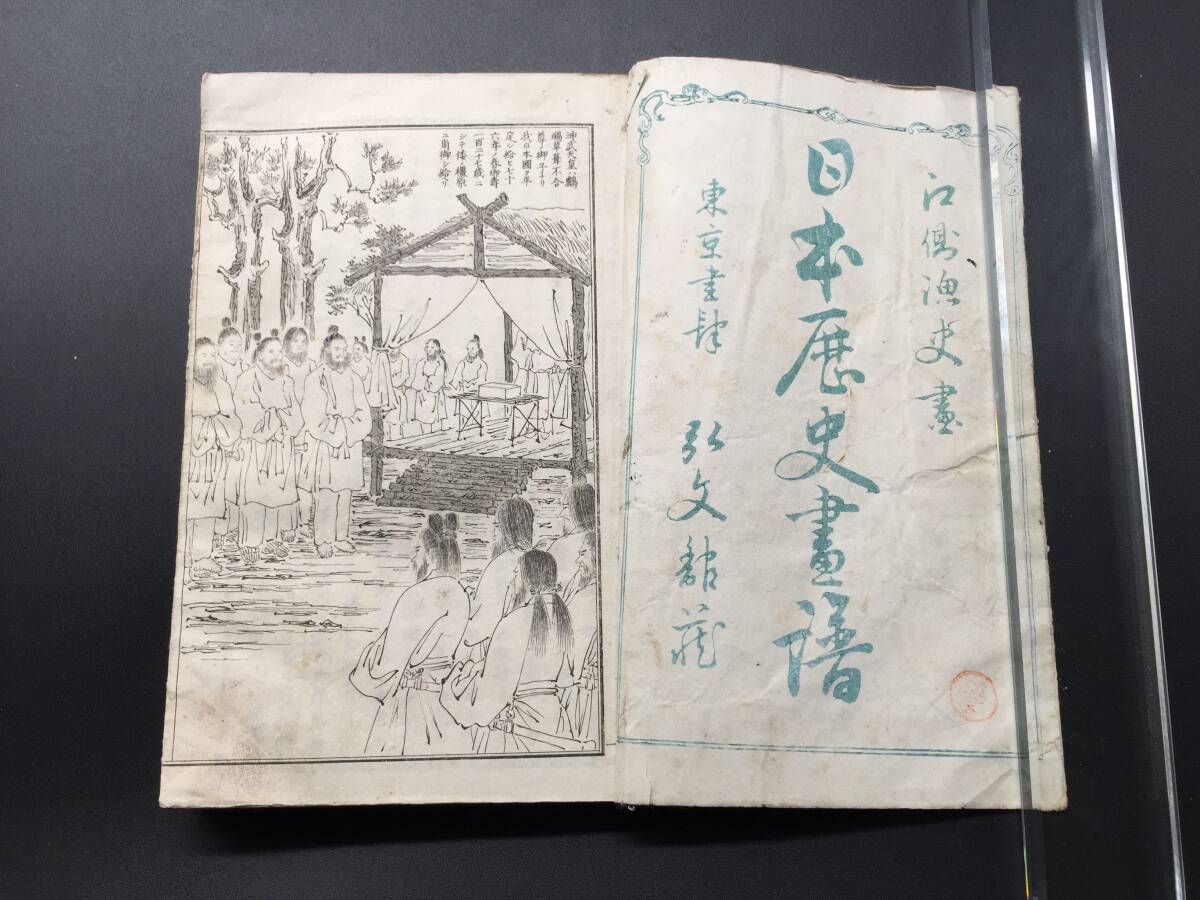 江側漁史畫
日本歴史畫譜
東京書肆 弘文館蔵
神武天皇ハ鸕
鶿草葺不合
尊ノ御子ナリ
我日本國ヲ平
定シ給ヒ七十
六年ノ春御壽
一百二十七歳ニ
シテ倭ノ橿原
ニ崩御シ給ヘリ